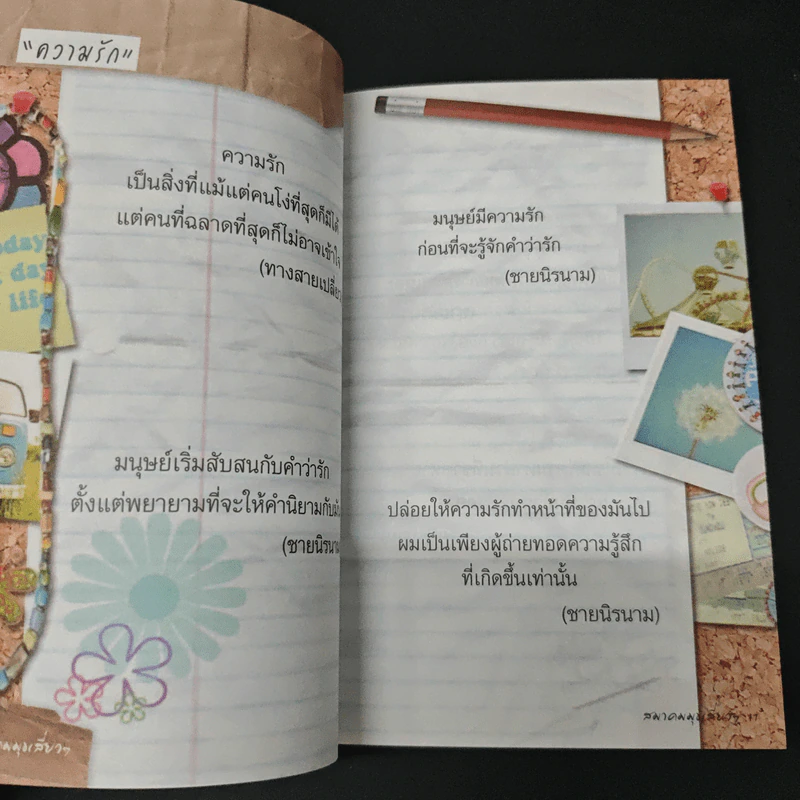 "ความรัก"
ความรัก
เป็นสิ่งที่แม้แต่คนโง่ที่สุดก็มีได้
แต่คนที่ฉลาดที่สุดก็ไม่อาจเข้าใจ
(ทางสายเปลี่ยว
day
life
มนุษย์เริ่มสับสนกับคำว่ารัก
ตั้งแต่พยายามที่จะให้คำนิยามกับ
(ชายนิรนาม
มนุษย์มีความรัก
ก่อนที่จะรู้จักคำว่ารัก
(ชายนิรนาม)
ปล่อยให้ความรักทำหน้าที่ของมันไป
ผมเป็นเพียงผู้ถ่ายทอดความรู้สึก
ที่เกิดขึ้นเท่านั้น
(ชายนิรนาม)